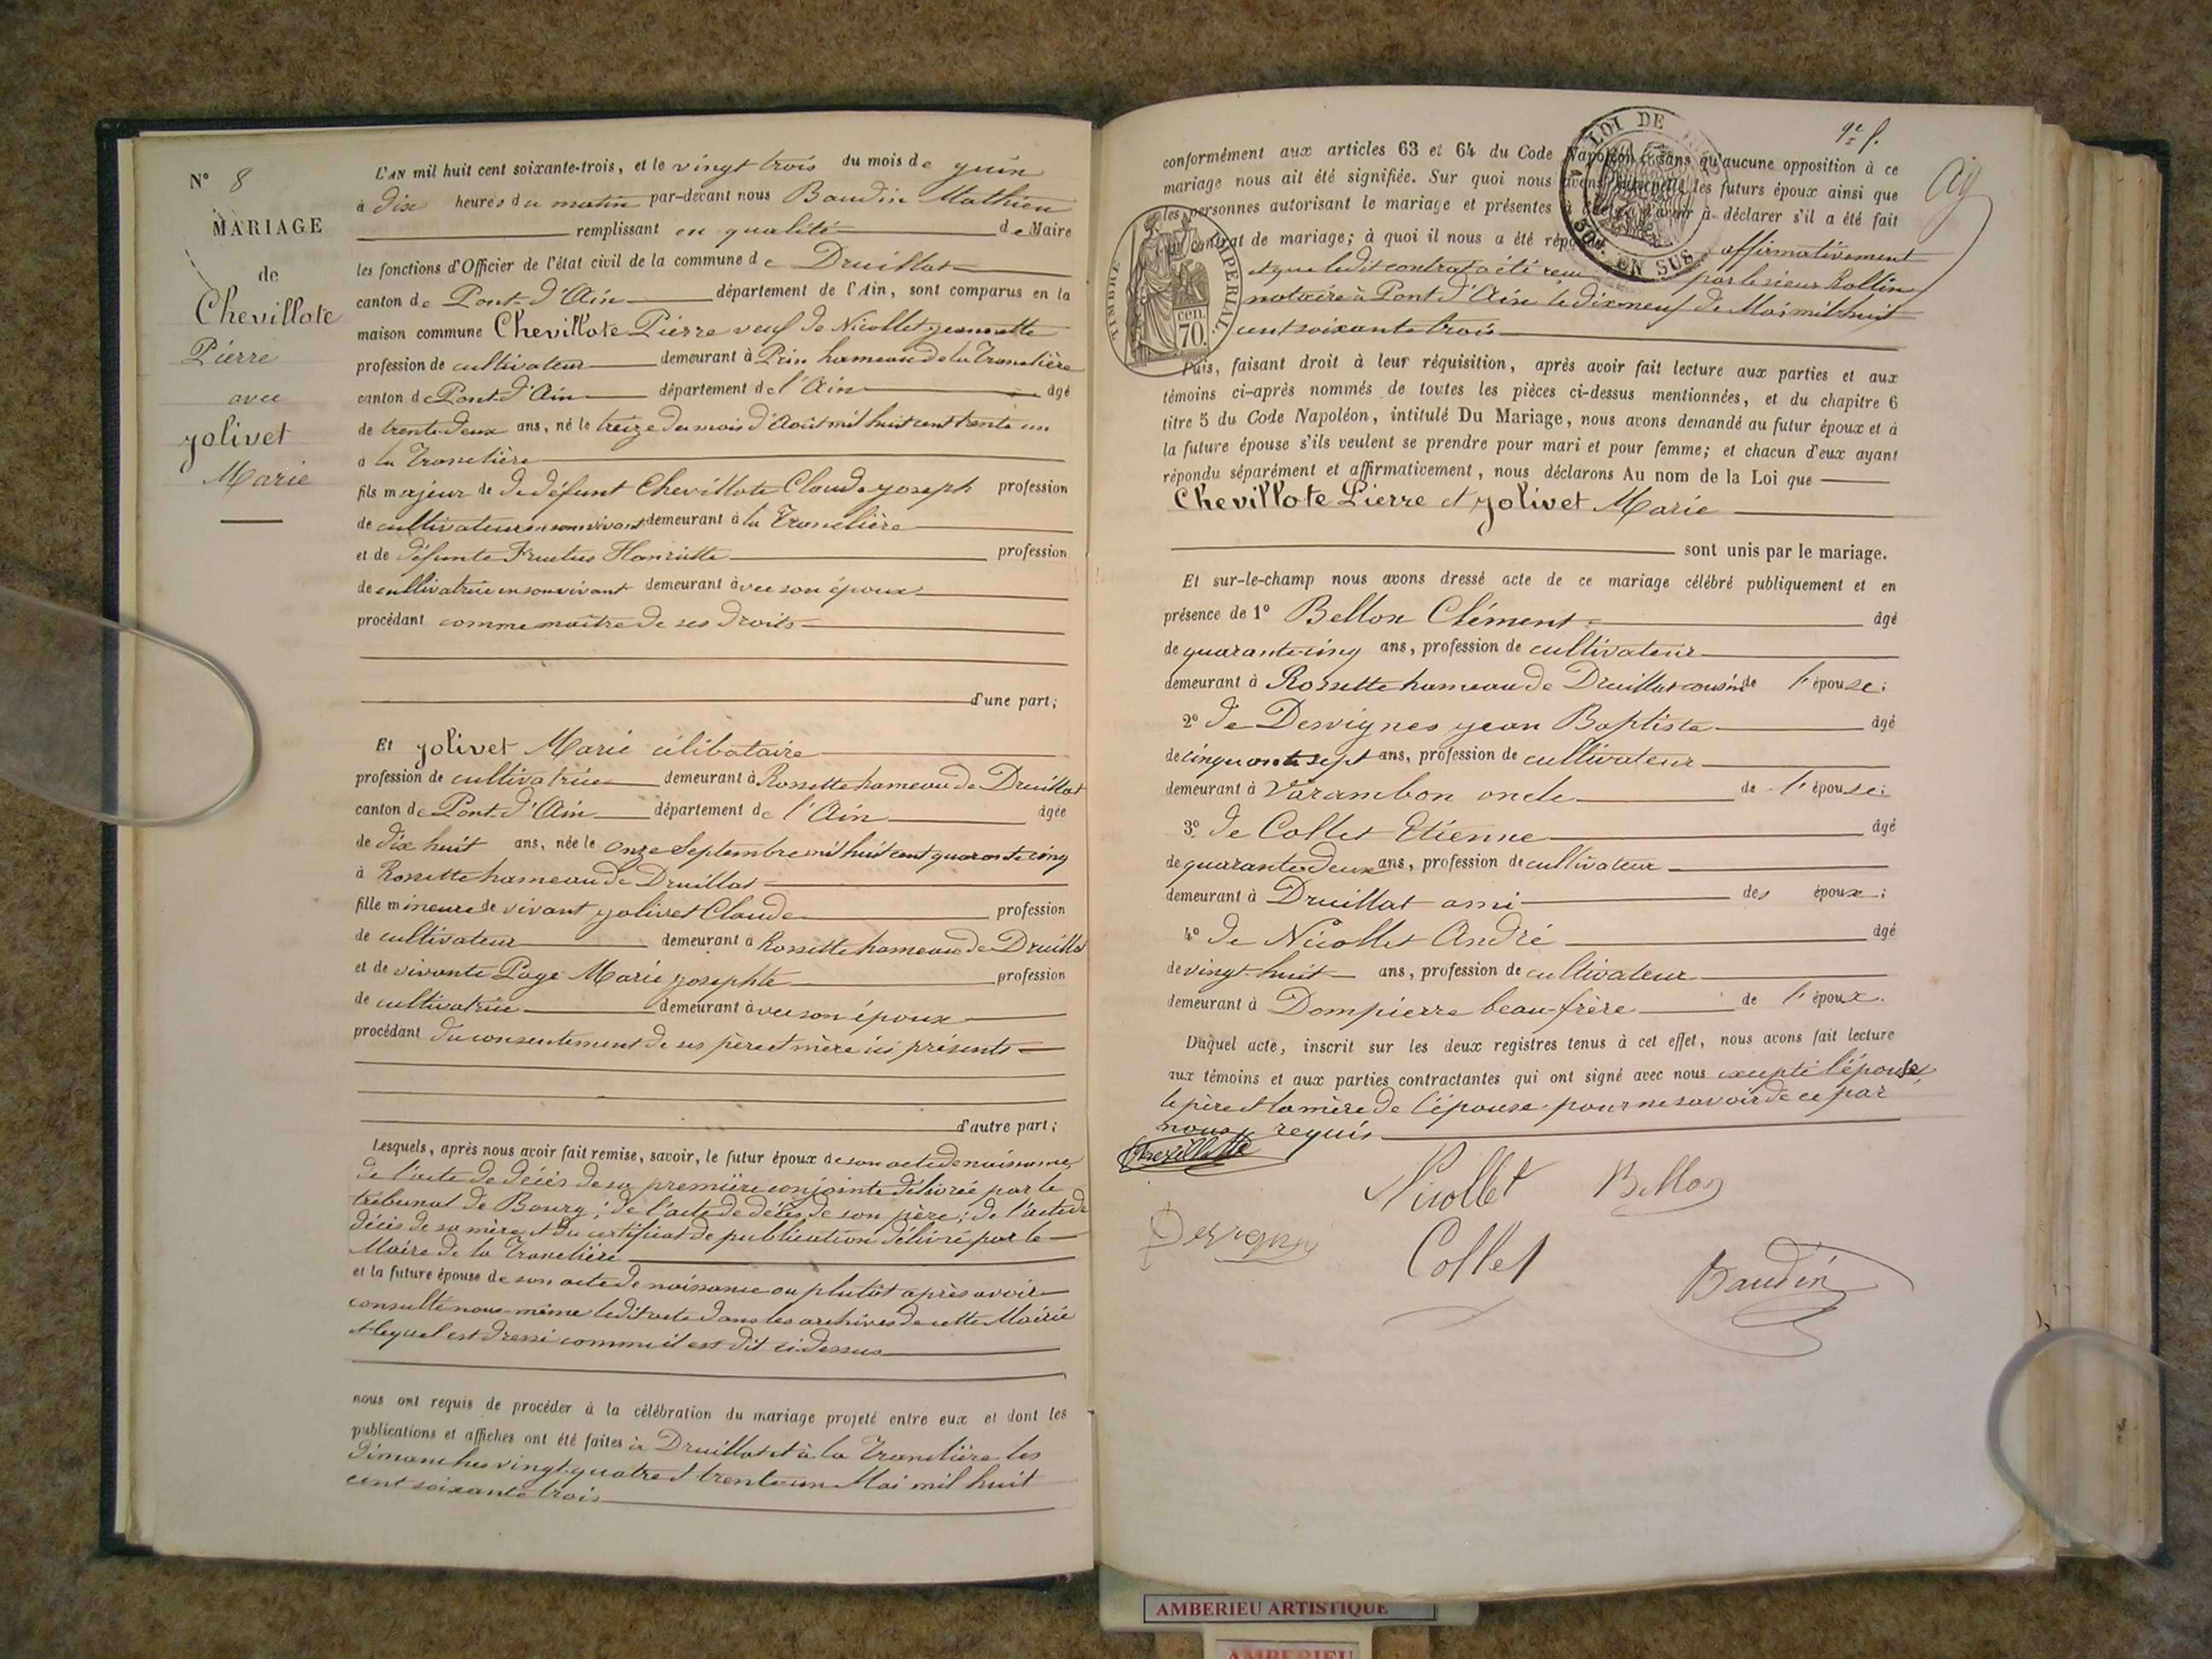 N° 8
MARIAGE
de
Chevillote
Pierre
avec
Jolivet
Marie
L'AN mil huit cent soixante-trois, et le vingt trois du mois de juin
à dix heures du matin par-devant nous Baudin Mathieu
remplissant en qualité de Maire
les fonctions d'Officier de l'état civil de la commune de Druillat
canton de Pont-d'Ain département de l'Ain, sont comparus en la
maison commune Chevillote Pierre veuf de Nicollet jeannette
profession de cultivateur demeurant à Prin hameau de la Tranclière
canton de Pont d'Ain département de l'Ain âgé
de trente deux ans, né le treize du mois d'Août mil huit cent trente un
à la Tranclière
fils majeur de de défunt Chevillote Claude joseph profession
de cultivateur en son vivant demeurant à la Tranclière
et de défunte Henriette profession
de cultivatrice en son vivant demeurant avec son époux
procédant comme maître de ses droits
d'une part;
Et Jolivet Marie célibataire
profession de cultivatrice demeurant à Rossette hameau de Druillat
canton de Pont-d'Ain département de l'Ain âgée
de dix huit ans, née le onze Septembre mil huit cent quarante cinq
à Rossette hameau de Druillat
fille mineure de vivant jolivet Claude profession
de cultivateur demeurant à Rossette hameau de Druillat
et de vivante Page Marie josephte profession
de cultivatrice demeurant avec son époux
procédant du consentement de ses père et mère ici présents
d'autre part;
Lesquels, après nous avoir fait remise, savoir, le futur époux de son acte de naissance,
de l'acte de décès de sa première conjointe délivrée par le
tribunal de Bourg; de l'acte de décès de son père; de l'acte de
décès de sa mère et du certificat de publication délivré par le
Maire de la Tranclière
et la future épouse de son acte de naissance ou plutôt après avoir
consulté nous-même ledit acte dans les archives de cette Mairie
et lequel est dressé comme il est dit ci-dessus
nous ont requis de procéder à la célébration du mariage projeté entre eux et dont les
publications et affiches ont été faites à Druillat et à la Tranclière les
dimanches vingt-quatre et trente un Mai mil huit
cent soixante trois
9e f.
conformément aux articles 63 et 64 du Code Napoléon et sans qu'aucune opposition à ce
mariage nous ait été signifiée. Sur quoi nous avons interpellé les futurs époux ainsi que
les personnes autorisant le mariage et présentes à d'avoir à déclarer s'il a été fait
contrat de mariage; à quoi il nous a été répondu affirmativement
et que ledit contrat a été reçu par le sieur Rollin
notaire à Pont d'Ain le dix neuf de Mai mil huit
cent soixante trois
LOI DE
50 EN SUS
TIMBRE IMPERIAL.
70. cen.
Puis, faisant droit à leur réquisition, après avoir fait lecture aux parties et aux
témoins ci-après nommés de toutes les pièces ci-dessus mentionnées, et du chapitre 6
titre 5 du Code Napoléon, intitulé Du Mariage, nous avons demandé au futur époux et à
la future épouse s'ils veulent se prendre pour mari et pour femme; et chacun d'eux ayant
répondu séparément et affirmativement, nous déclarons Au nom de la Loi que
Chevillote Pierre et Jolivet Marie
sont unis par le mariage.
Et sur-le-champ nous avons dressé acte de ce mariage célébré publiquement et en
présence de 1° Bellon Clément âgé
de quarante cinq ans, profession de cultivateur
demeurant à Rossette hameau de Druillat cousin de l'épouse;
2° de Desvignes jean Baptiste âgé
de cinquante sept ans, profession de cultivateur
demeurant à Varambon oncle de l'épouse;
3° de Collet Etienne âgé
de quarante deux ans, profession de cultivateur
demeurant à Druillat ami des époux;
4° de Nicollet André âgé
de vingt-huit ans, profession de cultivateur
demeurant à Dompierre beau-frère de l'époux.
Duquel acte, inscrit sur les deux registres tenus à cet effet, nous avons fait lecture
aux témoins et aux parties contractantes qui ont signé avec nous excepté l'épouse,
le père et la mère de l'épouse pour ne savoir de ce par
nous requis
Chevillotte
Nicollet Bellon
Desvignes
Collet
Baudin
AMBERIEU ARTISTIQUE
AMBERIEU